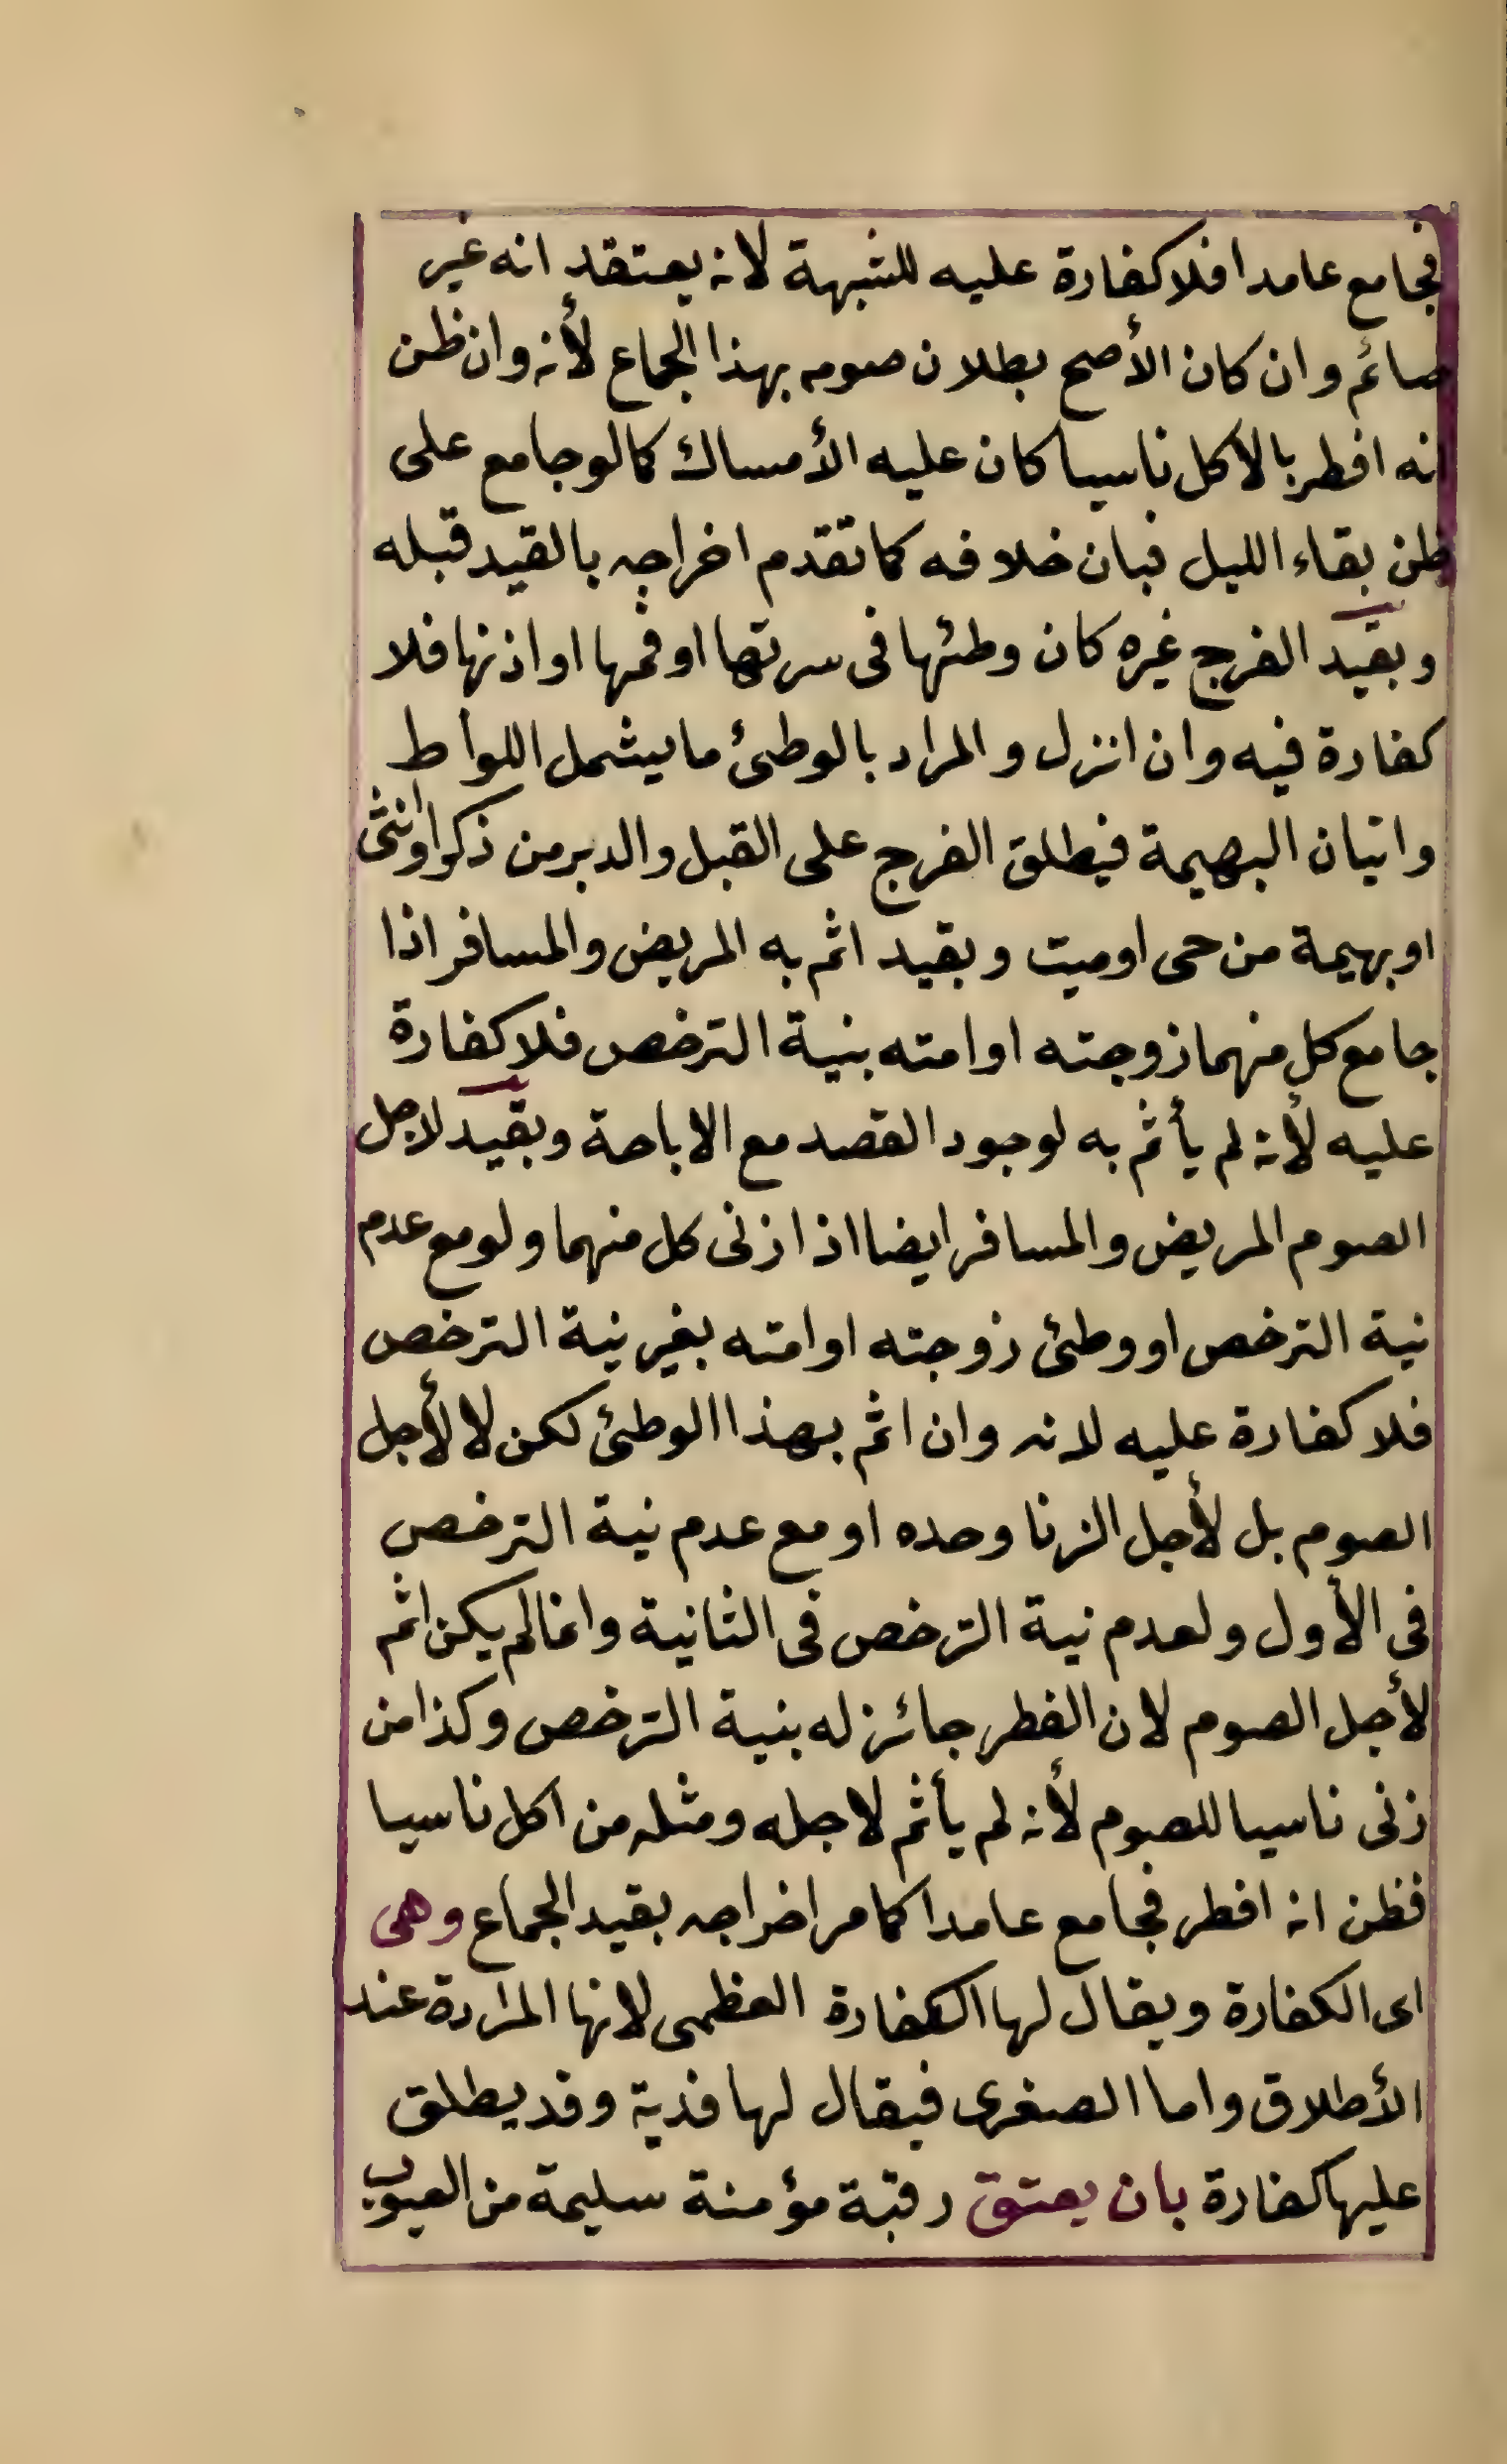 فجامع عامدا فلا كفارة عليه للشبهة لانه يعتقد انه غير
صائم وان كان الأصح بطلان صومه بهذا الجماع لأنه وان ظن
انه افطر بالاكل ناسيا كان عليه الأمساك كالو جامع على
ظن بقاء الليل فبان خلافه كما تقدم اخراجه بالقيد قبله
وبقيد الفرج غيره كان وطئها فى سرتها او فمها او اذنها فلا
كفارة فيه وان انزل والمراد بالوطئ ما يشمل اللواط
واتيان البهيمة فيطلق الفرج على القبل والدبر من ذكر او انثى
او بهيمة من حى او ميت وبقيد اثم به المريض والمسافر اذا
جامع كل منهما زوجته او امته بنية الترخص فلا كفارة
عليه لأنه لم يأثم به لوجود القصد مع الاباحة وبقيد لاجل
الصوم المريض والمسافر ايضا اذا زنى كل منهما ولو مع عدم
نية الترخص او وطئ زوجته او امته بغير نية الترخص
فلا كفارة عليه لانه وان اثم بهذا الوطئ لكن لا لأجل
الصوم بل لأجل الزنا وحده او مع عدم نية الترخص
فى الأول ولعدم نية الترخص فى الثانية وانما لم يكن اثم
لأجل الصوم لان الفطر جائز له بنية الترخص وكذا من
زنى ناسيا للصوم لأنه لم يأثم لاجله ومثله من اكل ناسيا
فظن انه افطر فجامع عامدا كما مر اخراجه بقيد الجماع وهى
اى الكفارة ويقال لها الكفارة العظمى لانها المرادة عند
الأطلاق واما الصغرى فيقال لها فدية وقد يطلق
عليها كفارة بان يعتق رقبة مؤمنة سليمة من العيوب